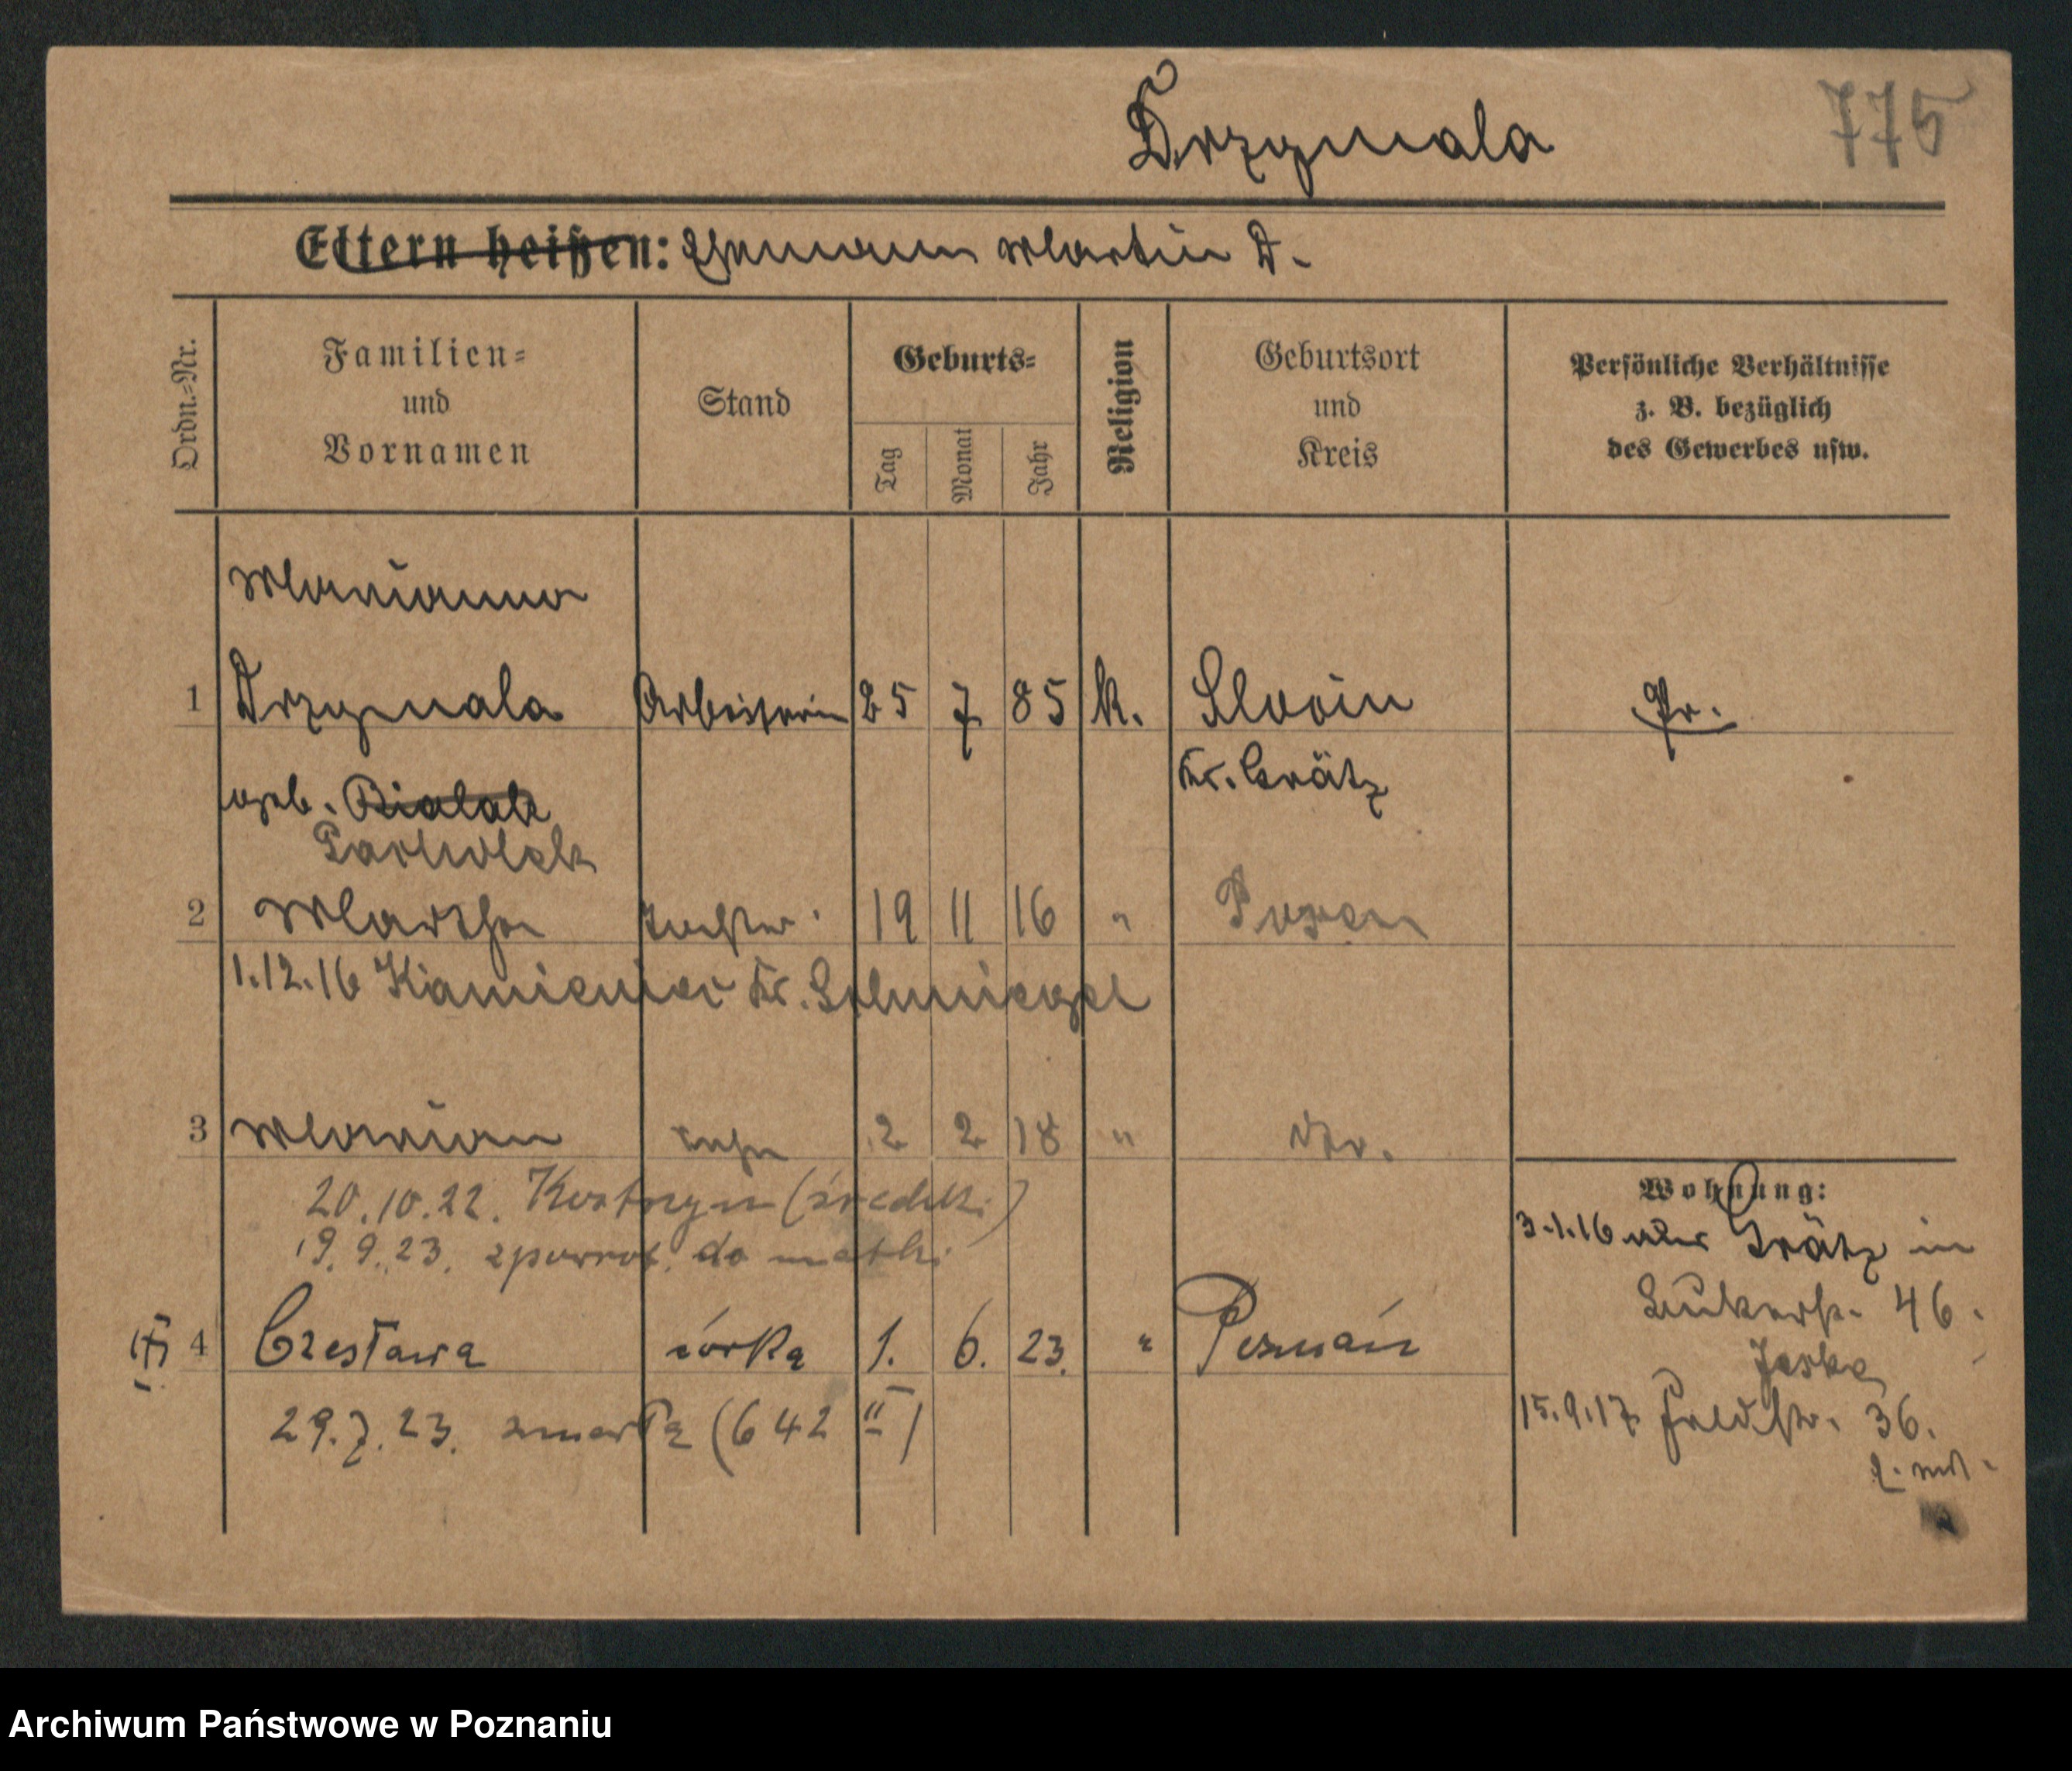 Drzymala
775
Eltern heißen: Ehemann Martin D.
Ordn.-Nr.
Familien-
und
Vornamen
Stand
Geburts-
Tag
Monat
Jahr
Religion
Geburtsort
und
Kreis
Persönliche Verhältnisse
z. B. bezüglich
des Gewerbes usw.
Marianna
1 Drzymala Arbeiterin 25 7 85 k. Slocin Pr.
geb. Bialak Kr. Grätz
2 Martha Tochter 19 11 16 " Posen
1.12.16 Kamieniec Kr. Schmiegel
3 Marian Sohn 2 2 18 " do.
20.10.22. Kostrzyn (średzki)
19.9.23. zpowrot. do matki
Wohnung:
3.1.16 aus Grätz in
46.
Jeske
4 Czesława córka 1. 6. 23. " Poznań
29.7.23. zmarła (642 II)
15.9.17. Feldstr. 36.